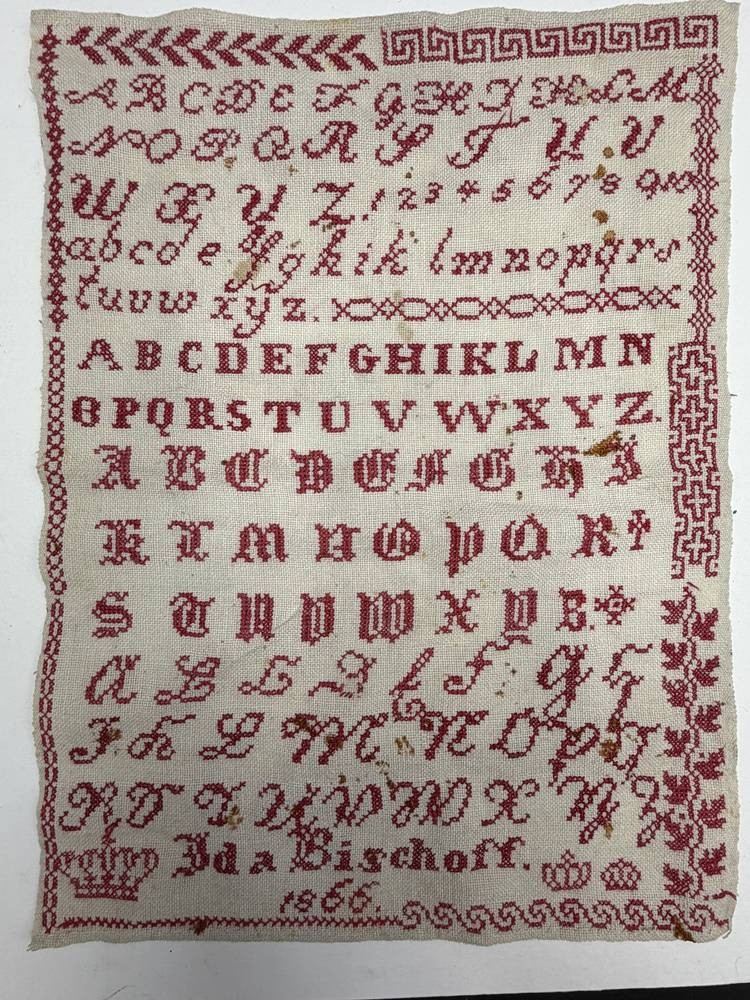 A B C D E F G H I K L M
N O P Q R S T U V
W X Y Z. 1 2 3 4 5 6 7 8 9 10
a b c d e f g h i k l m n o p q r s
t u v w x y z.
A B C D E F G H I K L M N
O P Q R S T U V W X Y Z.
A B C D E F G H I
K L M N O P Q R
S T U V W X Y Z.
A B C D E F G H
I K L M N O P Q
R S T U V W X Y Z
Ida Bischoff.
1866.